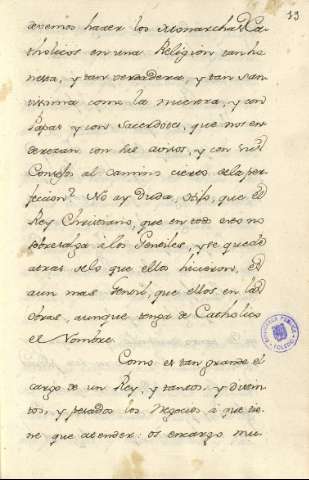 13
devemos hacer los Monarchas Ca-
tholicos en una Religion tan ho
nesta, y tan verdadera, y tan san-
tissima como la nuestra, y con
Papas y con Sacerdotes, que nos en-
derezan con sus avisos, y con sus
Consejos al camino cierto de la per-
feccion? No ay Duda, hijo, que el
Rey Christiano, que en todo esto no
sobresalga a los Gentiles, y se quede
atras de lo que ellos hicieron, es
aun mas Gentil, que ellos en las
obras, aunque tenga de Catholico
el Nombre.
Como es tan grande el
cargo de un Rey, y tantos, y diver-
tos, y pesados los Negocios à que tie-
ne que atender: os encargo mu-
BIBLIOTECA PUBLICA
TOLEDO